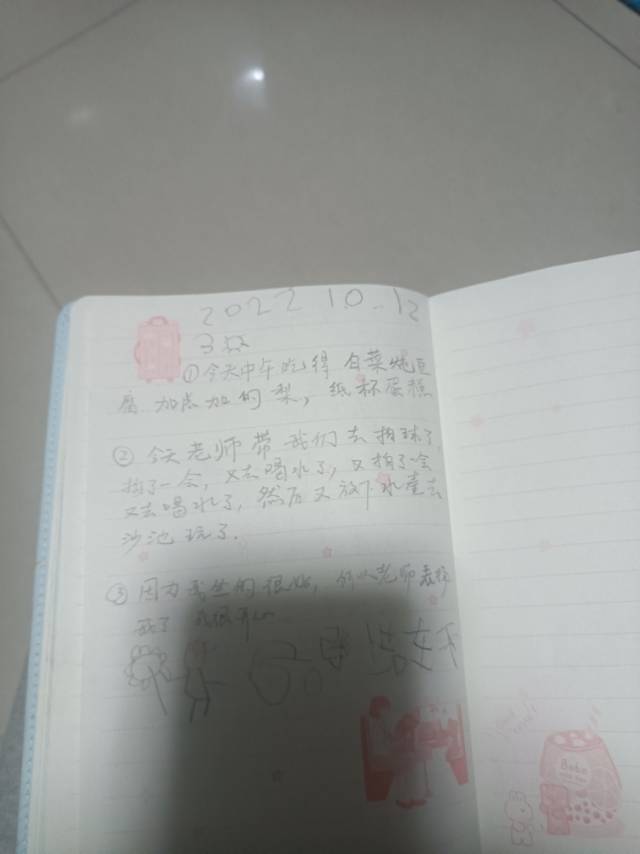 2022 10.12
①今天中午吃得白菜炖豆
腐 加点加的梨，纸杯蛋糕
②今天老师带我们去拍球了，
拍了一会，又去喝水了，又拍了一会
又去喝水了，然后又放下水壶去
沙池玩了.
③因为我坐的很好，所以老师表扬
我了 我很开心